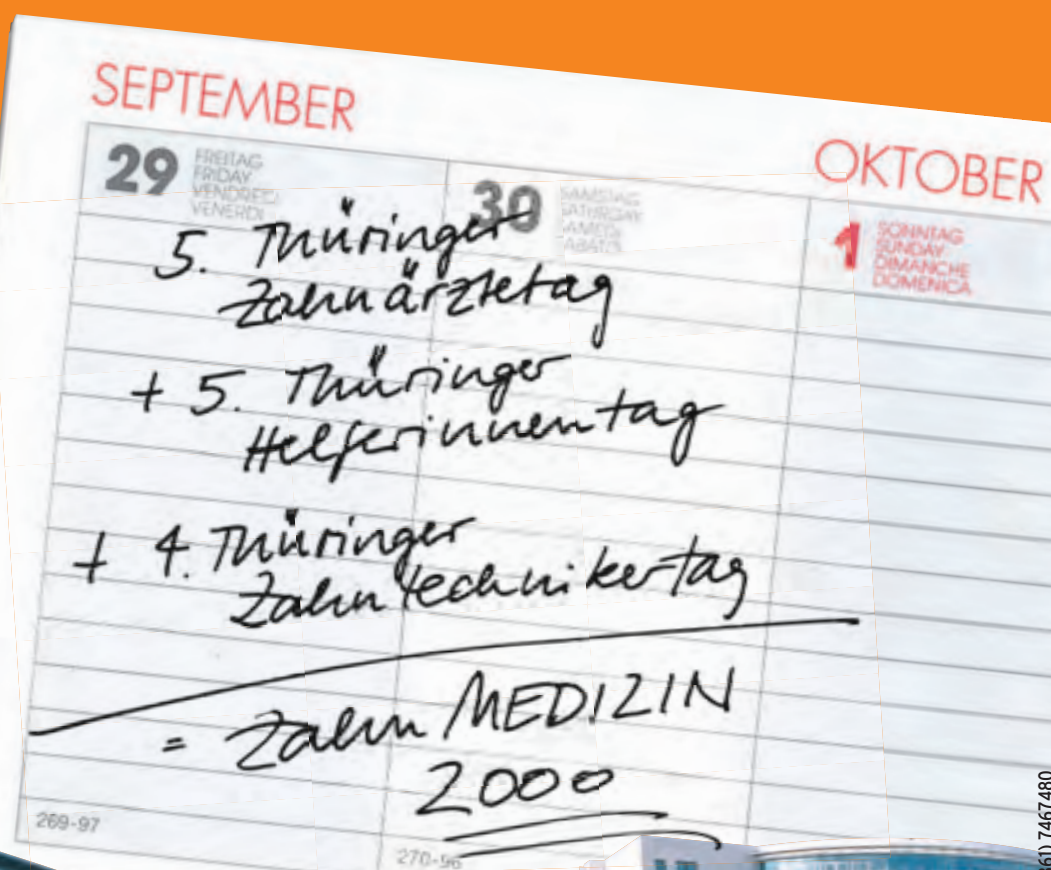 SEPTEMBER
OKTOBER
29
FREITAG
FRIDAY
VENDREDI
VENERDI
30
SAMSTAG
SATURDAY
SAMEDI
SABATO
1
SONNTAG
SUNDAY
DIMANCHE
DOMENICA
5. Thüringer
Zahnärztetag
+ 5. Thüringer
Helferinnentag
+ 4. Thüringer
Zahntechnikertag
= ZahnMEDIZIN
2000
269-97
270-96
61) 7467480